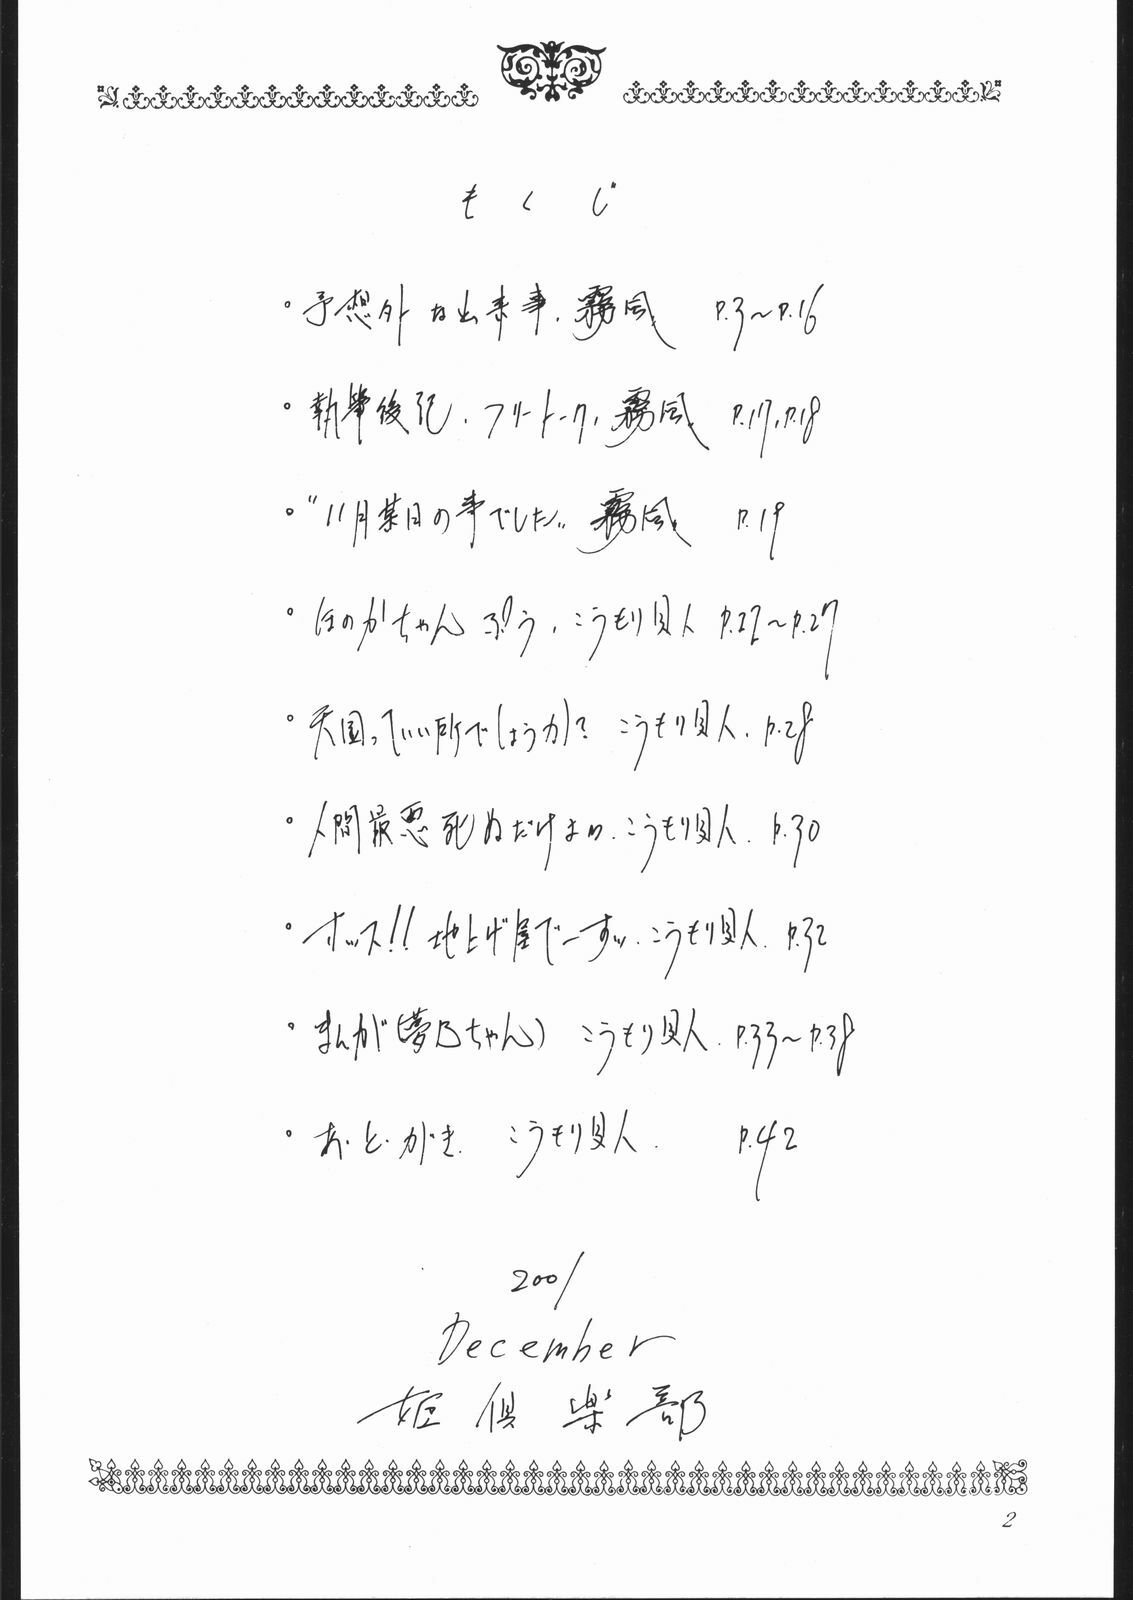 もくじ
・予想外な出来事. 霧風 P.3〜P.16
・執筆後記. フリートーク. 霧風 P.17, P.18
・"11月某日の事でした" 霧風 P.19
・ほのかちゃん ぷう. こうもり貝人 P.22〜P.27
・天国っていい所でしょうか? こうもり貝人. P.28
・人間最悪死ぬだけよね. こうもり貝人. P.30
・オッス!! 地上げ屋でーすッ. こうもり貝人. P.32
・まんが(夢乃ちゃん) こうもり貝人. P.33〜P.38
・あ・と・がき. こうもり貝人. P.42
2001
December
姫倶楽部
2